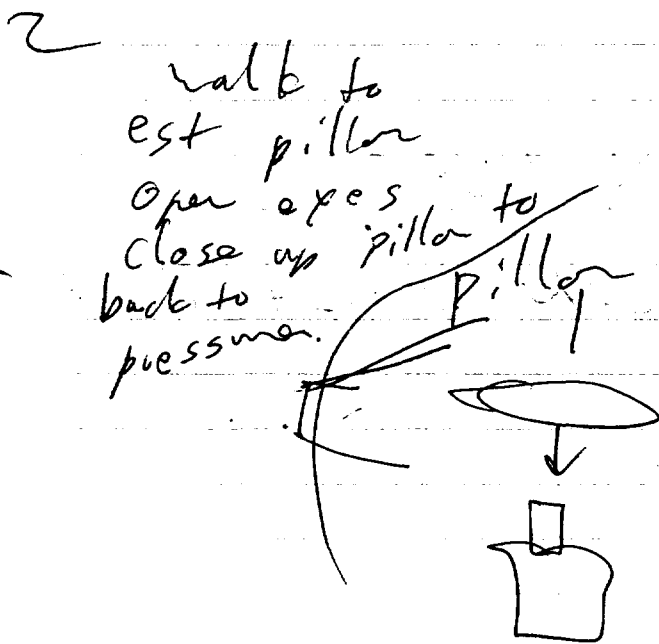 2
walk to
est pillar
open eyes
close up pillar to
back to pillar
pressman.